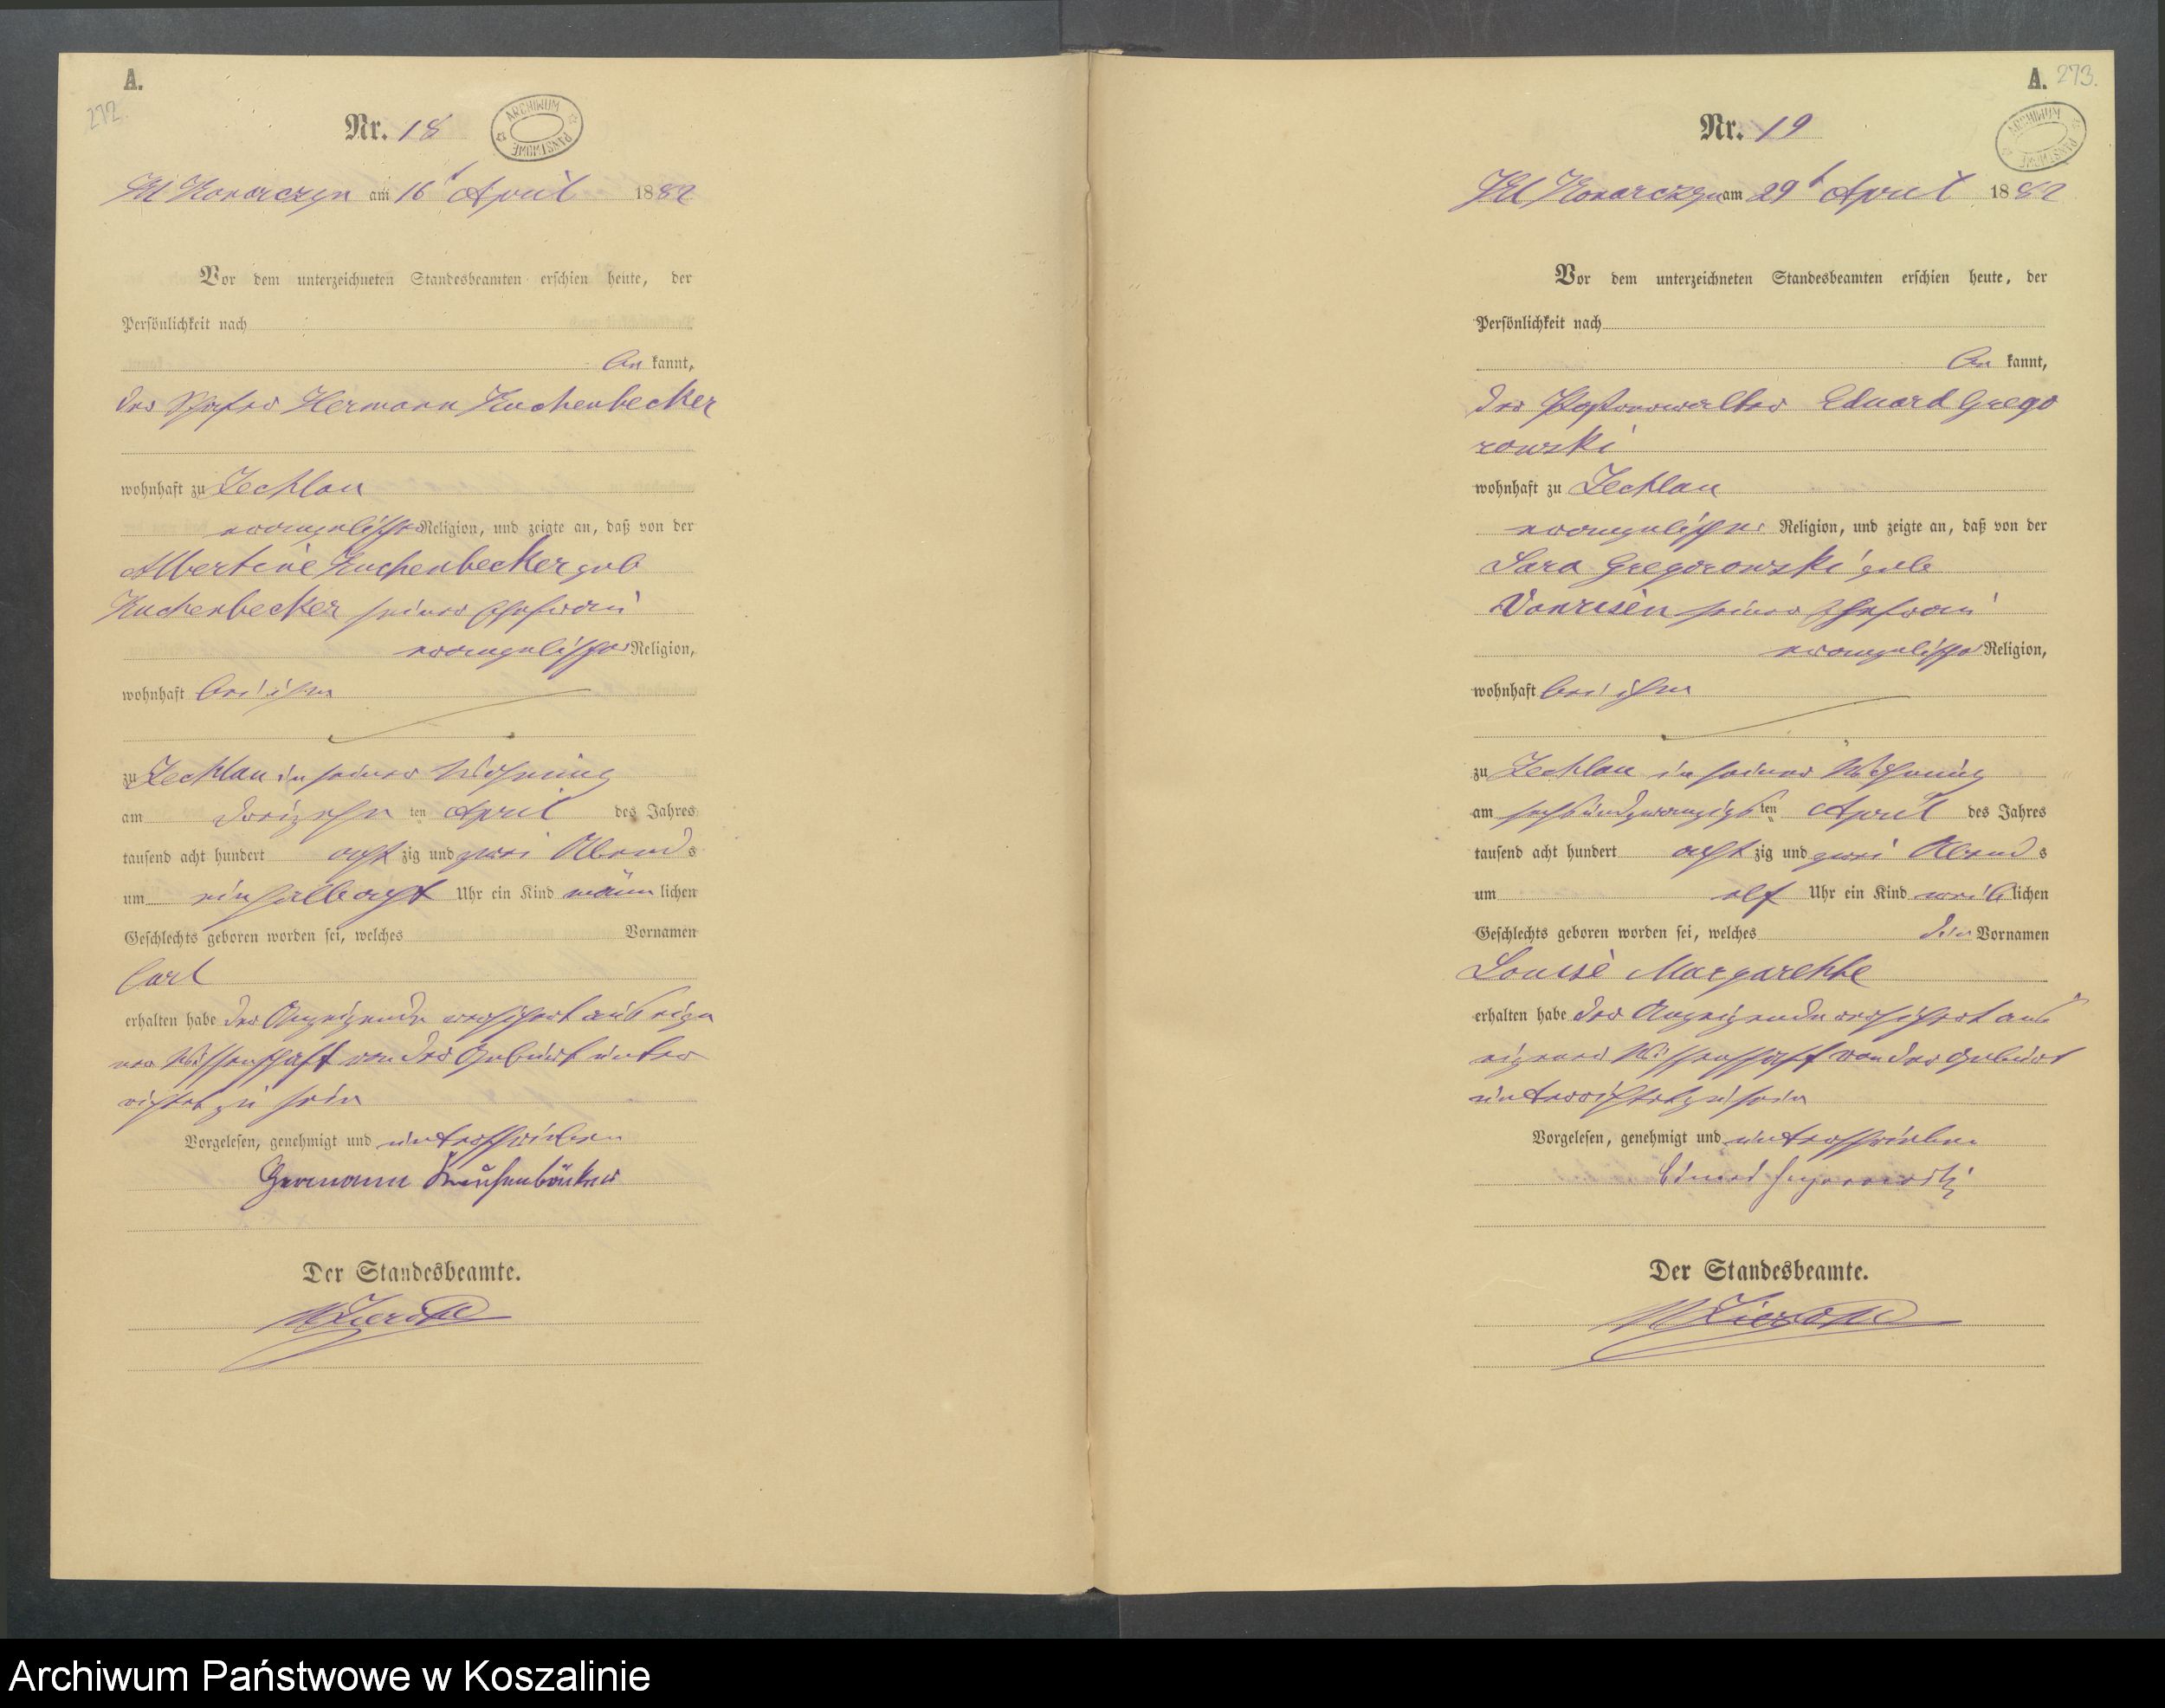 A.
272.
Nr. 18
ARCHIWUM PAŃSTWOWE
Kl Konarczyn am 16t April 1882
Vor dem unterzeichneten Standesbeamten erschien heute, der
Persönlichkeit nach
be kannt,
der Schäfer Hermann Kuchenbecker
wohnhaft zu Zechlau
evangelischer Religion, und zeigte an, daß von der
Albertine Kuchenbecker geb
Kuchenbecker seiner Ehefrau
evangelischer Religion,
wohnhaft bei ihm
zu Zechlau in seiner Wohnung
am dreizehn ten April des Jahres
tausend acht hundert acht zig und zwei Abend s
um ein halb acht Uhr ein Kind männ lichen
Geschlechts geboren worden sei, welches Vornamen
Carl
erhalten habe der Anzeigende versichert aus eige
ner Wissenschaft von der Geburt unter
richtet zu sein
Vorgelesen, genehmigt und unterschrieben
Hermann Kuchenbäcker
Der Standesbeamte.
A. 273.
Nr. 19
ARCHIWUM PAŃSTWOWE
Kl Konarczyn am 29t April 1882
Vor dem unterzeichneten Standesbeamten erschien heute, der
Persönlichkeit nach
be kannt,
der Postverwalter Eduard Grego
rowski
wohnhaft zu Zechlau
evangelischer Religion, und zeigte an, daß von der
Sara Gregorowski geb
seiner Ehefrau
evangelischer Religion,
wohnhaft bei ihm
zu Zechlau in seiner Wohnung
am sechsundzwanzigs ten April des Jahres
tausend acht hundert acht zig und zwei Abend s
um elf Uhr ein Kind weib lichen
Geschlechts geboren worden sei, welches die Vornamen
Louise Margarethe
erhalten habe der Anzeigende versichert aus
eigener Wissenschaft von der Geburt
unterrichtet zu sein
Vorgelesen, genehmigt und unterschrieben
Eduard Gregorowski
Der Standesbeamte.
Archiwum Państwowe w Koszalinie